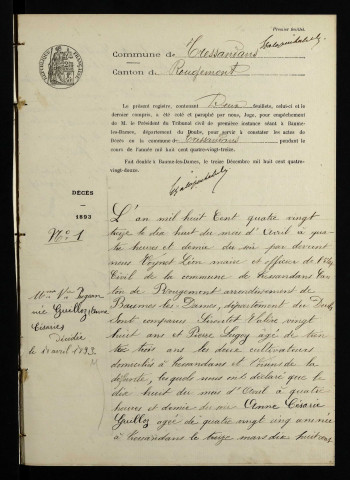 Premier feuillet.
Commune de Tressandans
Canton de Rougemont
Le présent registre, contenant Deux feuillets, celui-ci et le
dernier compris, a été coté et paraphé par nous, Juge, pour empêchement
de M. le Président du Tribunal civil de première instance séant à Baume-
les-Dames, département du Doubs, pour servir à constater les actes de
Décès en la commune de Tressandans pendant le
cours de l'année mil huit cent quatre-vingt-treize.
Fait double à Baume-les-Dames, le treize Décembre mil huit cent quatre-
vingt-douze.
DÉCÈS
1893
No 1
Mme Ve
née Guilloz Anne
Césarie
décédée
le 18 avril 1893
M
L'an mil huit Cent quatre vingt
treize le dix huit du mois d'Avril à qua
tre heures et demie du soir par devant
nous Léon maire et officier de l'Etat
Civil de la commune de Tressandans Can
ton de Rougemont arrondissement de
Baumes les Dames, département du Doubs
sont comparus vingt
huit ans et Pierre âgé de tren
te trois ans les deux cultivateurs
domiciliés à Tressandans et de la
défunte, lesquels nous ont déclaré que le
dix huit du mois d'Avril à quatre
heures et demie du soir Anne Césarie
Guilloz agée de quatre vingt ans née
à Tressandans le treize mars dix huit cent